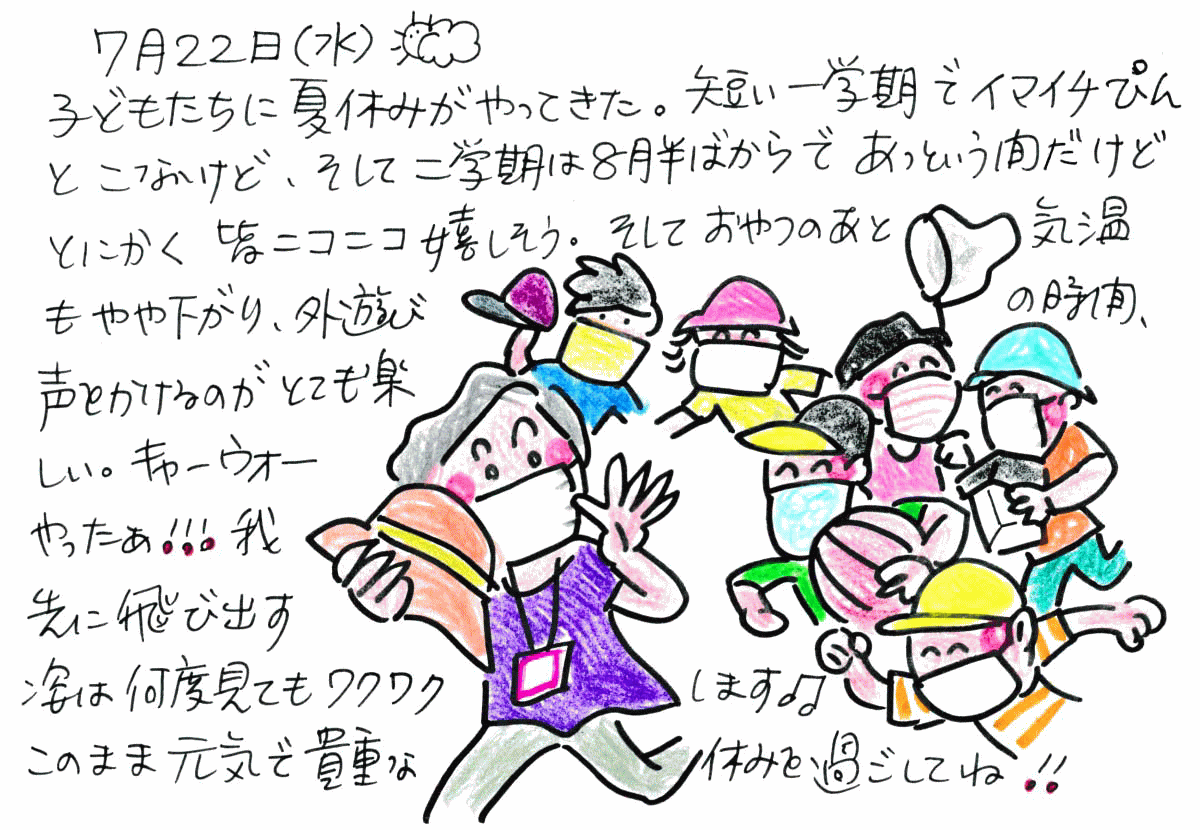 7月22日(水)
子どもたちに夏休みがやってきた。短い一学期でイマイチぴん
とこないけど、そして二学期は8月半ばからであっという間だけど
とにかく皆ニコニコ嬉しそう。そしておやつのあと気温
もやや下がり、外遊びの時間、
声をかけるのがとても楽
しい。キャーウォー
やったぁ!!!我
先に飛び出す
姿は何度見てもワクワクします♫
このまま元気で貴重な休みを過ごしてね!!